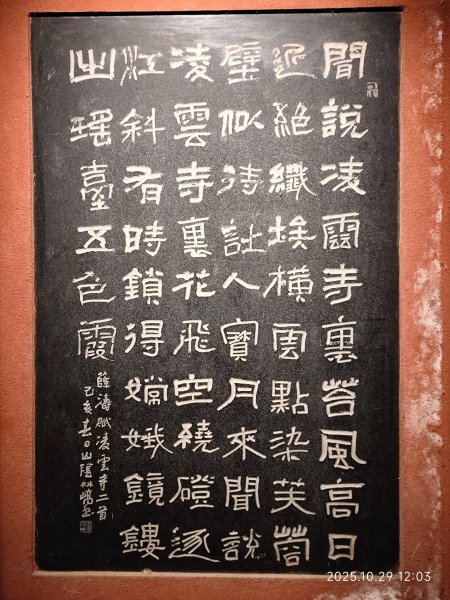 聞說凌雲寺裏苔風高日
近絕纖埃橫雲點染芙蓉
壁似待詩人寶月來聞說
凌雲寺裏花飛空繞磴逐
江斜有時鎖得嫦娥鏡鏤
出瑤臺五色霞
薛濤賦凌雲寺二首
己亥春日山陰林
2025.10.29 12:03